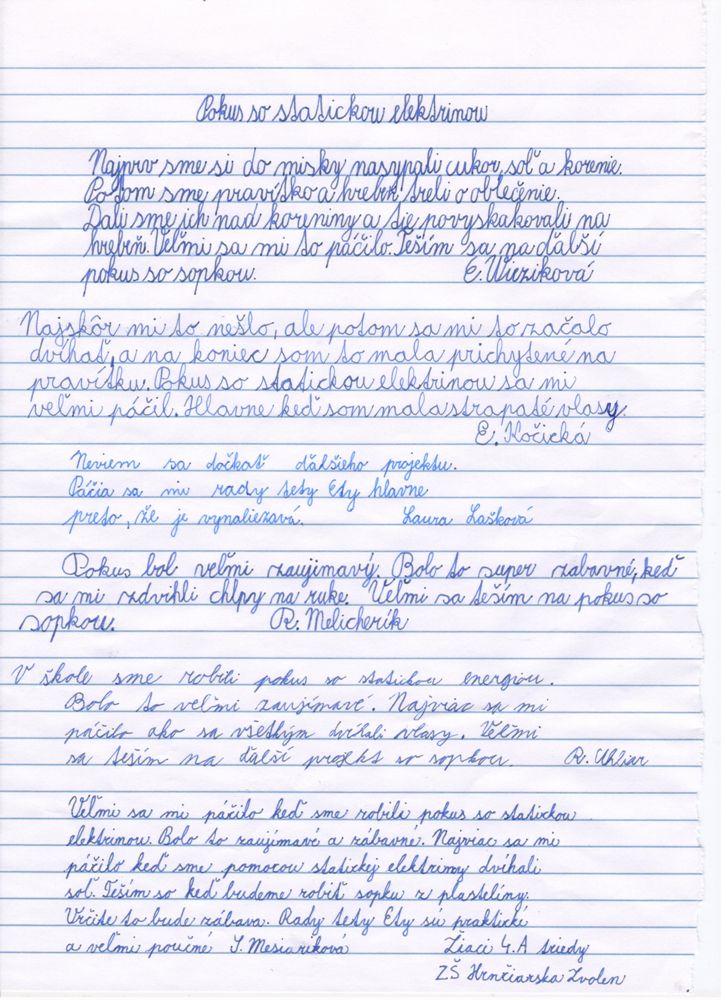 Pokus so statickou elektrinou
Najprv sme si do misky nasypali cukor, soľ a korenie.
Potom sme pravítko a hrebeň treli o oblečenie.
Dali sme ich nad koreniny a tie povyskakovali na
hrebeň. Veľmi sa mi to páčilo. Teším sa na ďalší
pokus so sopkou. E. Wiezíková
Najskôr mi to nešlo, ale potom sa mi to začalo
dvíhať, a na koniec som to mala prichytené na
pravítku. Pokus so statickou elektrinou sa mi
veľmi páčil. Hlavne keď som mala strapaté vlasy.
E. Kočická
Neviem sa dočkať ďalšieho projektu.
Páčia sa mi rady tety Ety hlavne
preto, že je vynaliezavá. Laura Lašková
Pokus bol veľmi zaujimavý. Bolo to super zabavné, keď
sa mi zdvihli chlpy na ruke. Veľmi sa teším na pokus so
sopkou. R. Melicherík
V škole sme robili pokus so statickou energiou.
Bolo to veľmi zaujímavé. Najviac sa mi
páčilo ako sa všetkým dvíhali vlasy. Veľmi
sa teším na ďalší projekt so sopkou. R. Uhliar
Veľmi sa mi páčilo keď sme robili pokus so statickou
elektrinou. Bolo to zaujímavé a zábavné. Najviac sa mi
páčilo keď sme pomocou statickej elektrimy dvíhali
soľ. Teším so keď budeme robiť sopku z plastelíny.
Určite to bude zábava. Rady tety Ety sú praktické
a veľmi poučné S. Mesiariková Žiaci 4.A triedy
ZŠ Hrnčiarska Zvolen